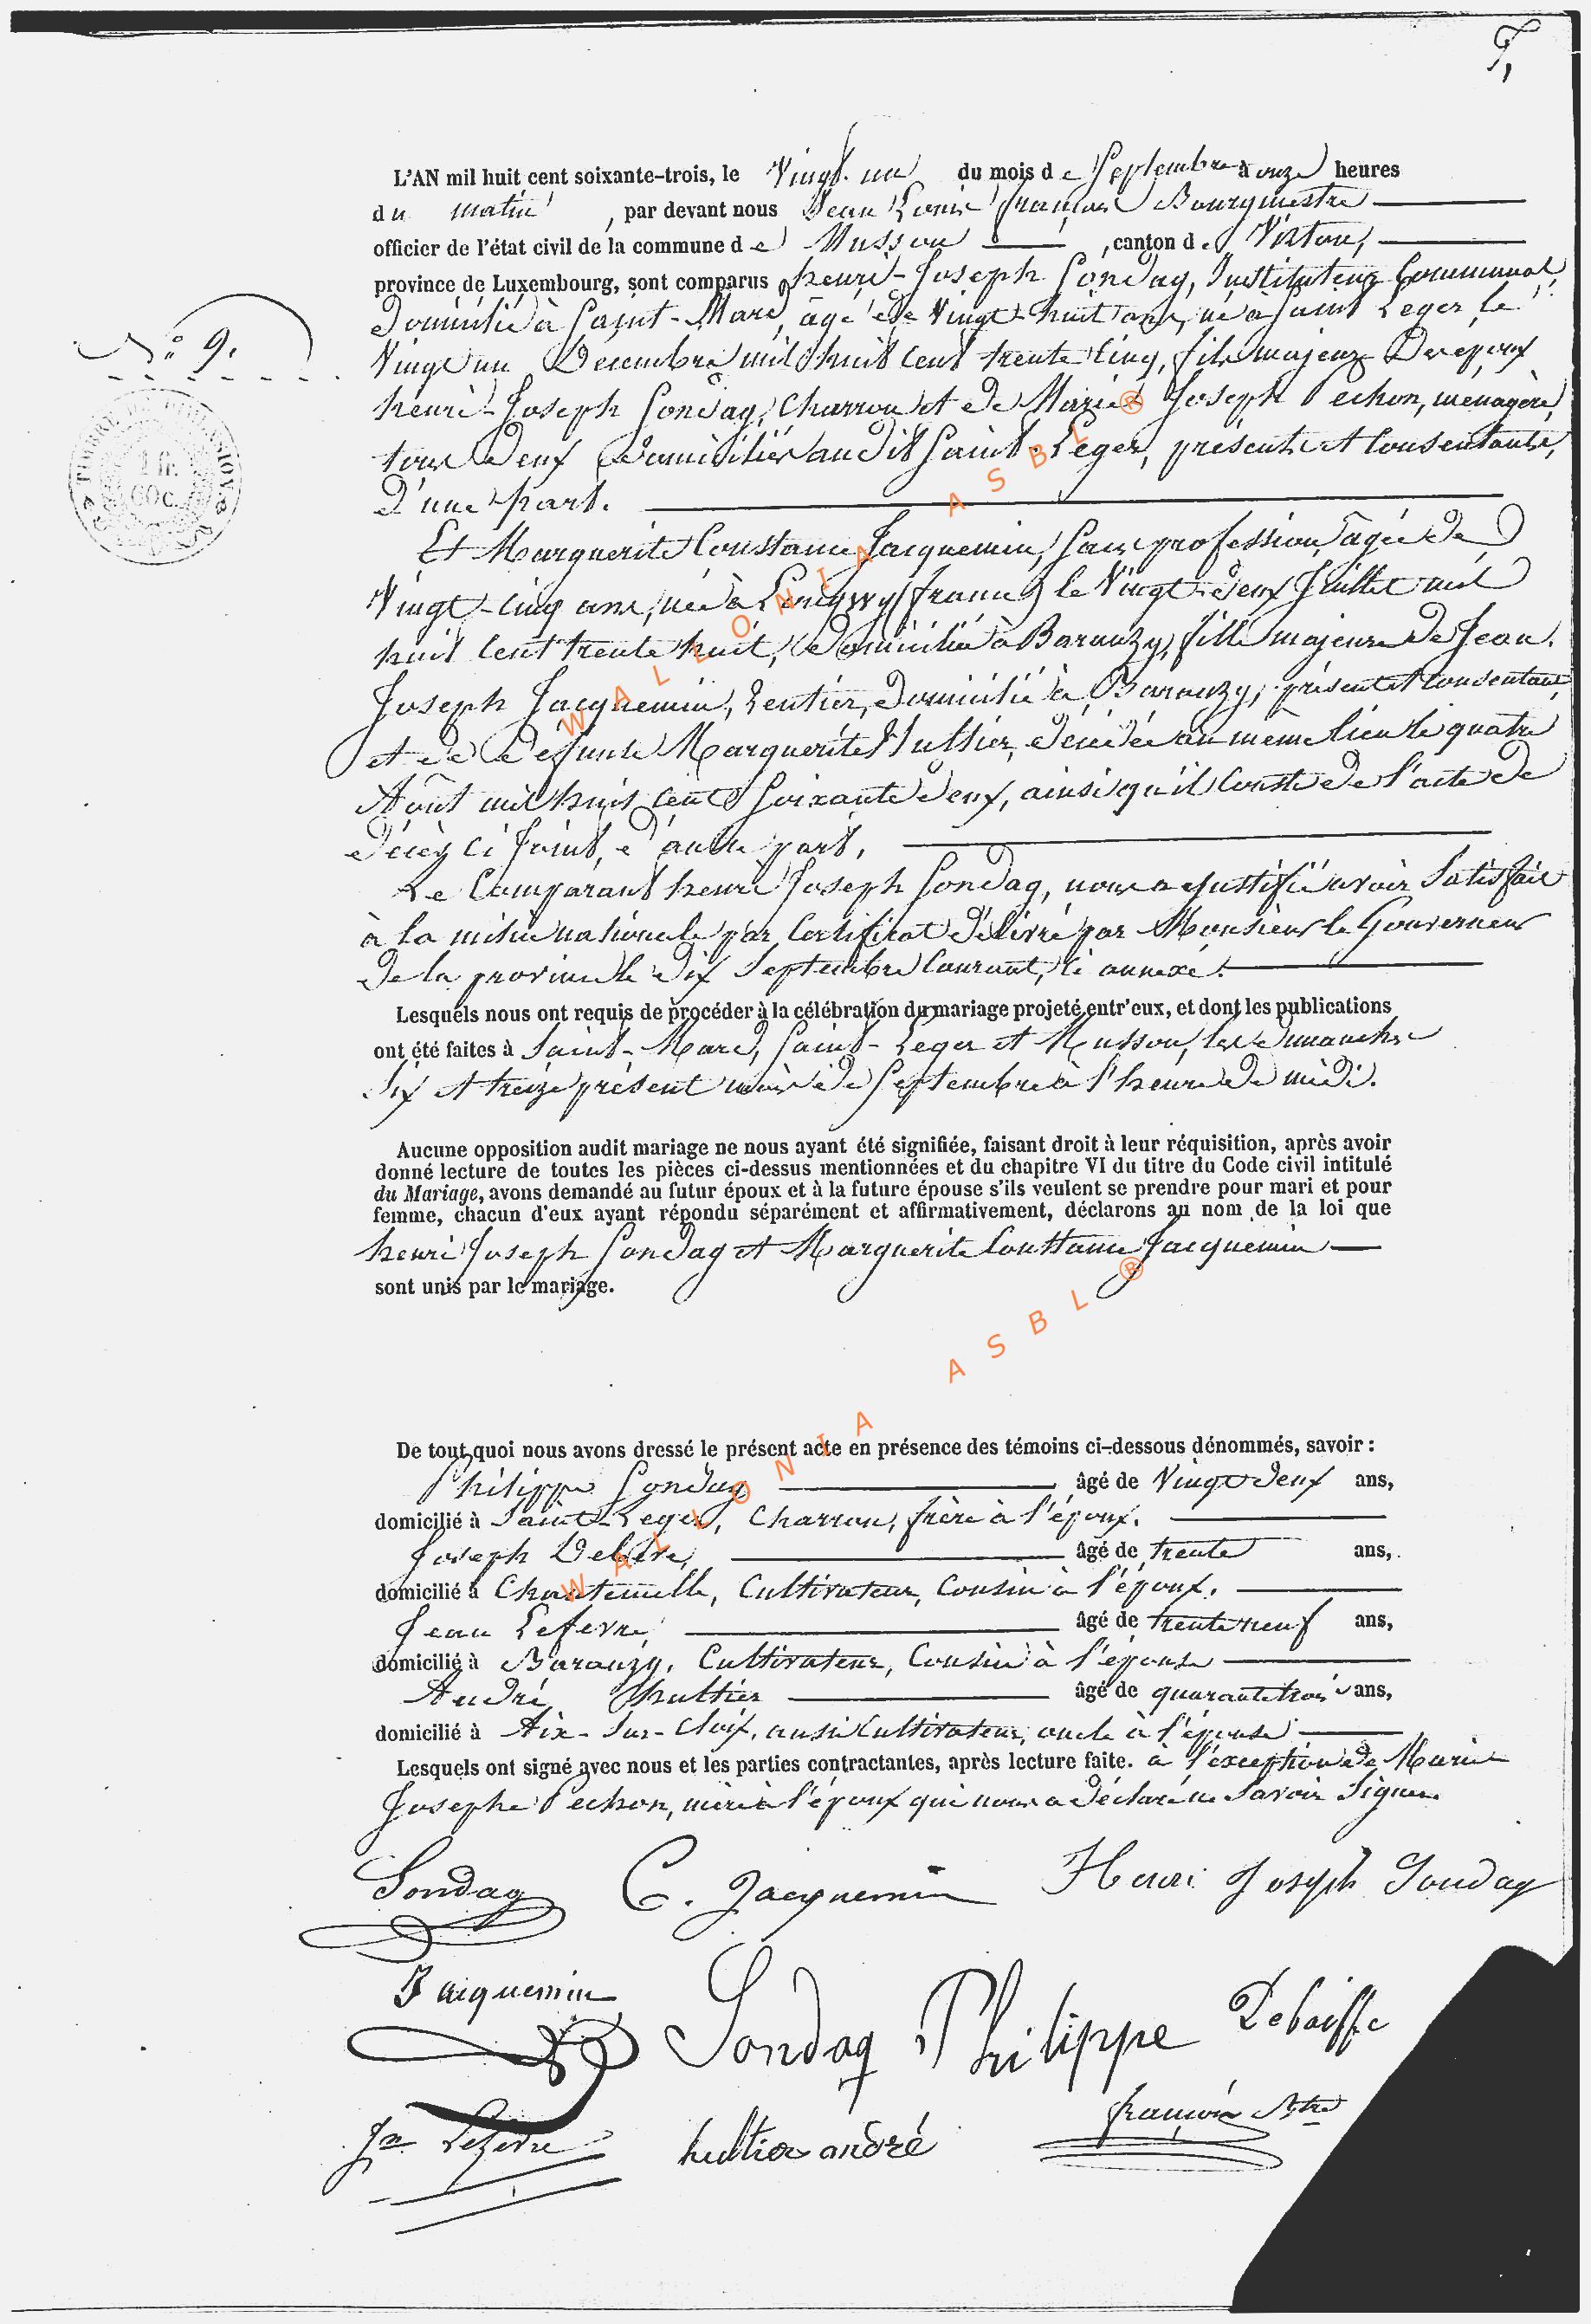 L'AN mil huit cent soixante-trois, le Vingt-un du mois de Septembre à onze heures
du matin, par devant nous Jean Louis françois Bourgmestre
officier de l'état civil de la commune de Musson, canton de Virton,
province de Luxembourg, sont comparus henri-Joseph Sondag, Instituteur Communal,
domicilié à Saint-Mard, âgé de Vingt-huit ans, né à Saint Leger, le
N° 9.
Vingt un Decembre mil huit cent trente cinq, fils majeur des époux
henri-Joseph Sondag, Charron et de Marie Joseph Pechon, ménagère,
tous deux domiciliés audit Saint-Leger, présents et Consentants,
D'une part.
TIMBRE DE DIMENSION
1 fr.
60 c.
Et Marguerite Constance Jacquemin, Sans profession, âgée de
Vingt-cinq ans, née à Longwy (france) le Vingt-deux Juillet mil
huit Cent trente huit, domiciliée à Baranzy, fille majeure de Jean
Joseph Jacquemin, Rentier, domicilié à Baranzy, présent et Consentant
et de defunte Marguerite hultier, décédée au même lieu le quatre
Août mil huit cent Soixante deux, ainsi qu'il Conste de l'acte de
décès ci Joint, d'autre part.
Le Comparant henri Joseph Sondag, nous a Justifié avoir Satisfait
à la milice nationale par Certificat délivré par Monsieur le Gouverneur
de la province le dix Septembre Courant, ci annexé.
Lesquels nous ont requis de procéder à la célébration du mariage projeté entr'eux, et dont les publications
ont été faites à Saint-Mard, Saint-Leger et Musson, les dimanches
Six et treize présent mois de Septembre à l'heure de midi.
Aucune opposition audit mariage ne nous ayant été signifiée, faisant droit à leur réquisition, après avoir
donné lecture de toutes les pièces ci-dessus mentionnées et du chapitre VI du titre du Code civil intitulé
du Mariage, avons demandé au futur époux et à la future épouse s'ils veulent se prendre pour mari et pour
femme, chacun d'eux ayant répondu séparément et affirmativement, déclarons au nom de la loi que
henri Joseph Sondag et Marguerite Constance Jacquemin
sont unis par le mariage.
De tout quoi nous avons dressé le présent acte en présence des témoins ci-dessous dénommés, savoir :
Philippe Sondag âgé de Vingt deux ans,
domicilié à Saint-Leger, Charron, frère à l'époux.
Joseph âgé de trente ans,
domicilié à Chantemelle, Cultivateur, Cousin à l'époux.
Jean Lefevre, âgé de trente neuf ans,
domicilié à Baranzy, Cultivateur, Cousin à l'épouse
André hultier âgé de quarante trois ans,
domicilié à Aix-Sur-Cloix, aussi Cultivateur, oncle à l'épouse
Lesquels ont signé avec nous et les parties contractantes, après lecture faite. à l'exception de Marie
Josephe Pechon, mère à l'époux qui nous a déclaré ne Savoir Signer
Sondag C. Jacquemin Henri Joseph Sondag
Jacquemin Sondag Philippe Debaiffe
Jn Lefevre hultier andré françois
WALLONIA ASBL ®
WALLONIA ASBL ®